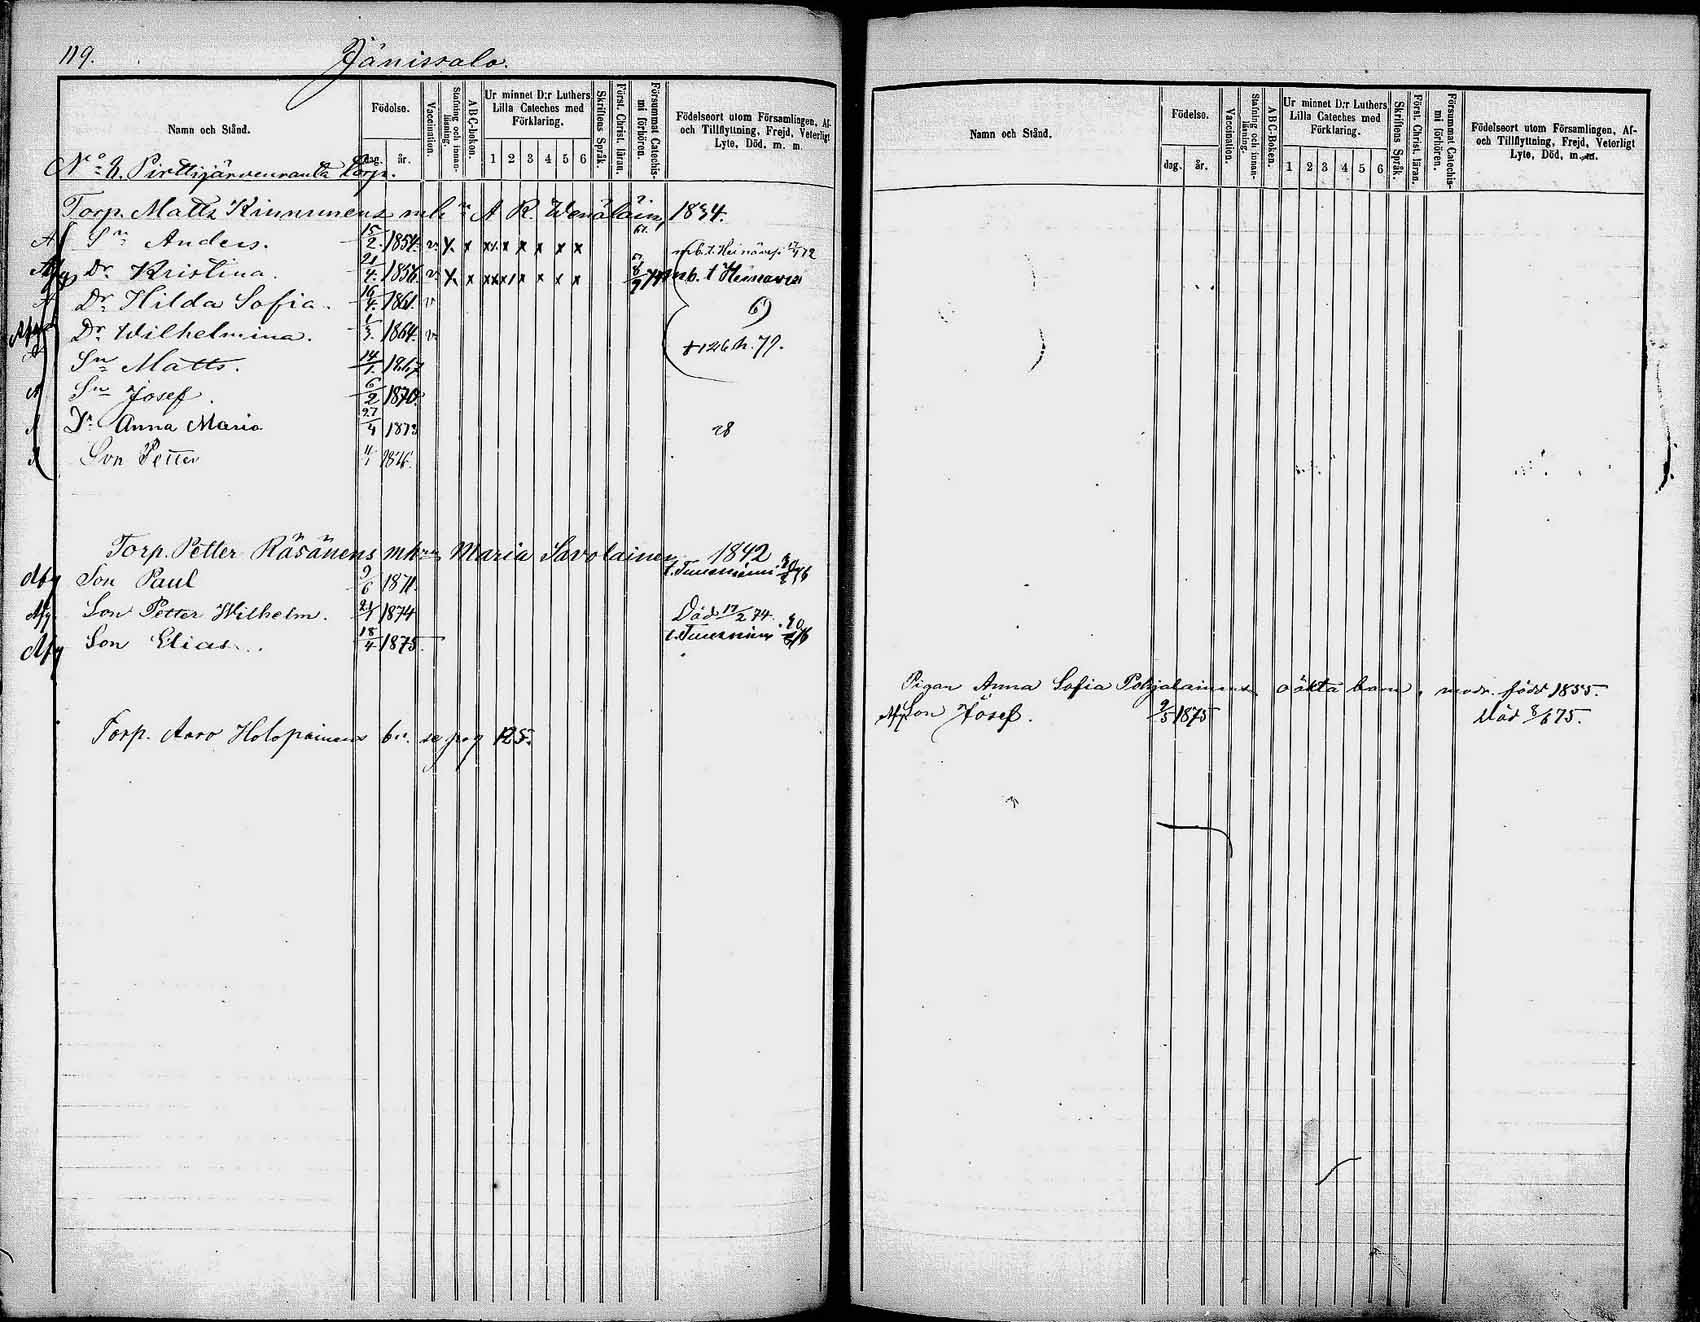 119.
Jänissalo.
Namn och Stånd.
Födelse.
dag. år.
Vaccination.
Stafning och innanläsning.
A B C-boken.
Ur minnet D:r Luthers Lilla Cateches med Förklaring.
1 2 3 4 5 6
Skriftens Språk.
Först. Christ. läran.
Försummat Catechismi förhören.
Födelseort utom Församlingen, Af- och Tillflyttning, Frejd, Veterligt Lyte, Död, m. m.
Pirttijärvenranta Torp.
Torp. Matts Kinnunens A R. Wenäläin 1834.
Sn Anders. 15/2. 1854. v x x x x x x x x mb. t. Heinävesi
Afg Dr Kristina. 21/4. 1856. v x x x x x x mb. t Heinävesi
Dr Hilda Sofia. 16/4. 1861. v
Dr Wilhelmina. 1/3. 1864. v
Sn Matts. 14/1. 1867
Sn Josef. 6/2 1870.
Dr Anna Maria 27/4 1873
Son Petter
Torp. Petter Räsänens Maria Savolainen 1842
Afg Son Paul 9/6 1871
Afg Son Petter Wilhelm. 1874 Död 17/2 74.
Afg Son Elias. 18/4 1875
Torp. Aaro Holopainens se pag 125.
Namn och Stånd.
Födelse.
dag. år.
Vaccination.
Stafning och innanläsning.
A B C-Boken.
Ur minnet D:r Luthers Lilla Cateches med Förklaring.
1 2 3 4 5 6
Skriftens Språk.
Först. Christ. läran.
Försummat Catechismi förhören.
Födelseort utom Församlingen, Af- och Tillflyttning, Frejd, Veterligt Lyte, Död, m. m.
Pigan Anna Sofia Pohjalainens oäkta barn, modr. född 1855.
Afg Son Josef. 9/5 1875 Död 8/6 75.